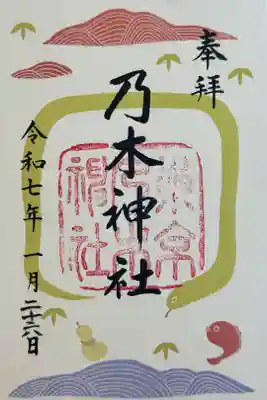 奉拝
乃木神社
令和七年 一月二十六日